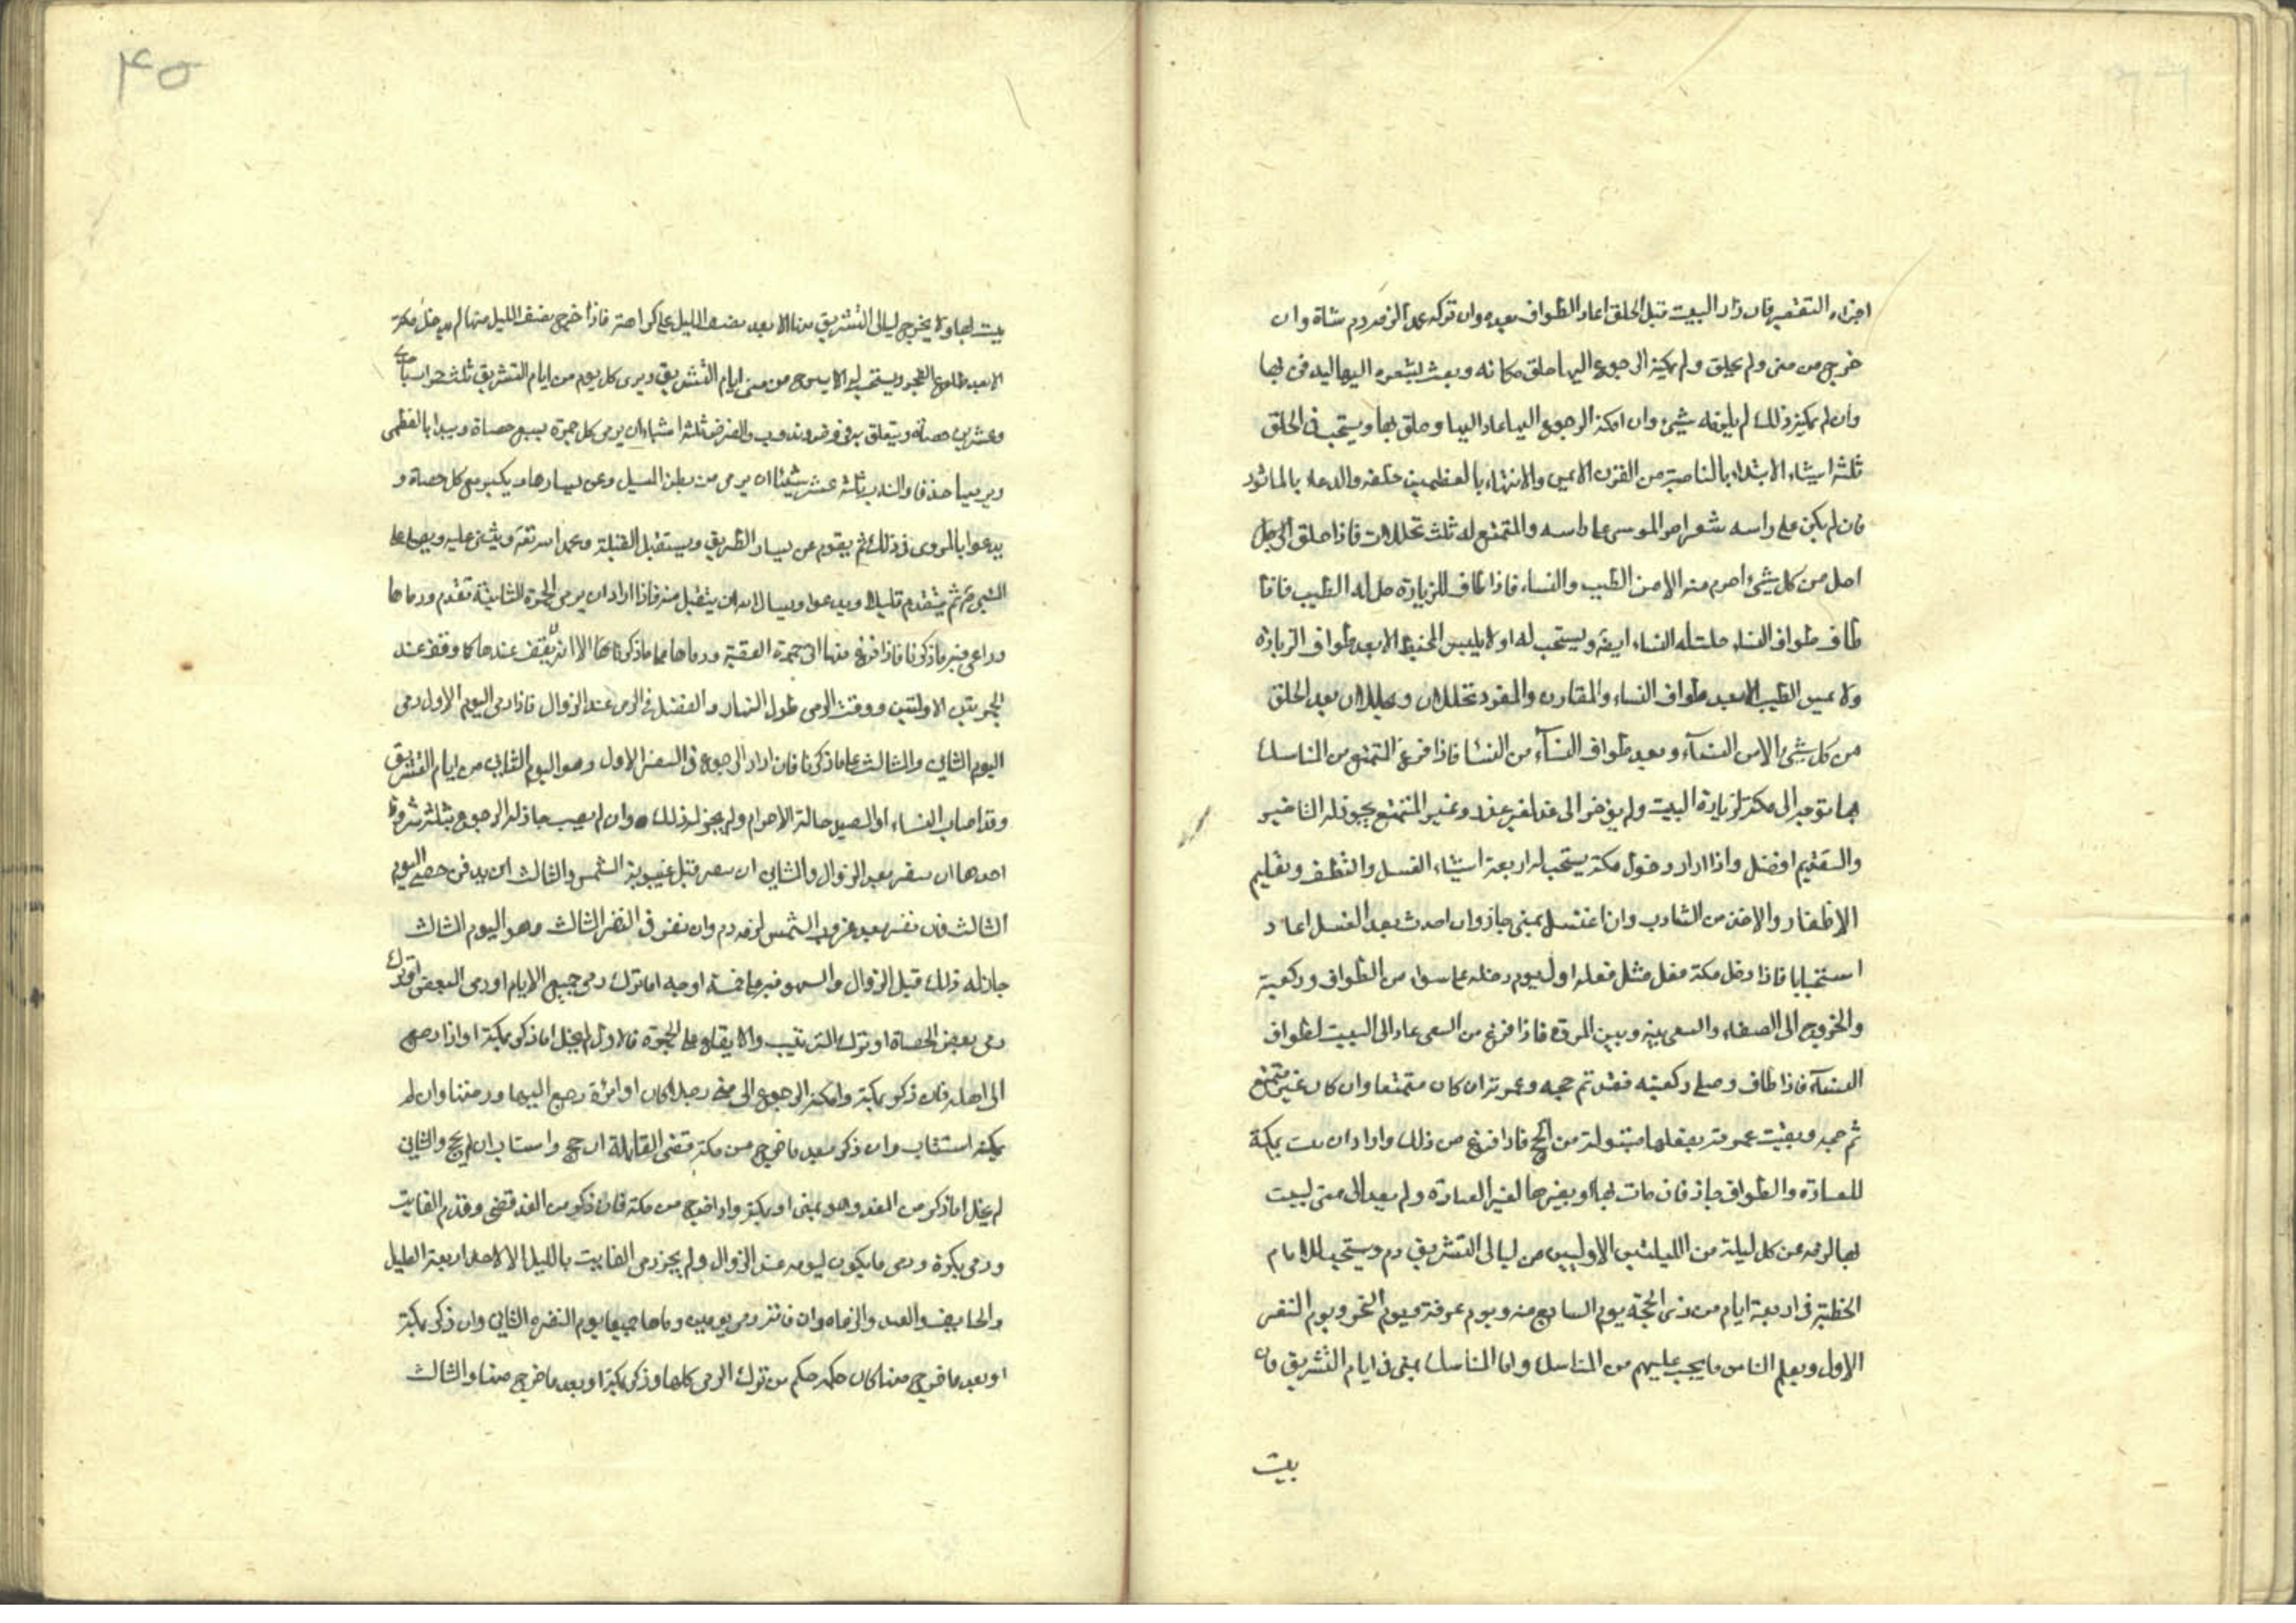 اجزاه التقصير فان زار البيت قبل الحلق اعاد الطواف بعده وان تركه عمدا لزمه دم شاة وان
خرج من منى ولم يحلق ولم يمكنه الرجوع اليها حلق مكانه وبعث بشعره اليها ليدفن بها
وان لم يمكنه ذلك لم يلزمه شئ وان امكنه الرجوع اليها عاد اليها وحلق بها ويستحب فى الحلق
ثلثة اشياء الابتداء بالناصية من القرن الايمن والانتهاء بالعظمين خلفه والدعاء بالماثور
فان لم يكن على راسه شعر امر الموسى على راسه والمتمتع له ثلث تحللات فاذا حلق الرجل
احل من كل شئ احرم منه الا من الطيب والنساء فاذا طاف للزيارة حل له الطيب فاذا
طاف طواف النساء حلت له النساء ايضا ويستحب له ان لا يلبس المخيط الا بعد طواف الزيارة
ولا يمس الطيب الا بعد طواف النساء والمقارن والمفرد تحللان ويحللان بعد الحلق
من كل شئ الا من النسآء وبعد طواف النسآء من النسا فاذا فرغ المتمتع من المناسك
بها توجه الى مكة لزيارة البيت ولم يؤخر الى غد لغير عذر وغير المتمتع يجوز له التاخير
والتقديم افضل واذا اراد دخول مكة يستحب له اربعة اشياء الغسل والتنظف وتقليم
الاظفار والاخذ من الشارب وان اغتسل بمنى جاز وان احدث بعد الغسل اعاد
استحبابا فاذا دخل مكة فعل مثل فعله اول يوم دخله مما سواه من الطواف وركعتيه
والخروج الى الصفاء والسعى بينه وبين المروة فاذا فرغ من السعى عاد الى البيت لطواف
النسآء فاذا طاف وصلى ركعتيه فقد تم حجه وعمرته ان كان متمتعا وان كان غير متمتع
تم حجه وبقيت عمرته يفعلها مبتولة من الحج فاذا فرغ من ذلك واراد ان يبيت بمكة
للعبادة والطواف جاز فان بات بها او بغيرها لغير العبادة ولم يعد الى منى ليبيت
بها لزمه عن كل ليلة من الليلتين الاوليين من ليالى التشريق دم ويستحب للامام
الخطبة فى اربعة ايام من ذى الحجة يوم السابع منه ويوم عرفة ويوم النحر ويوم النفر
الاول ويعلم الناس ما يجب عليهم من المناسك واما المناسك بمنى فى ايام التشريق فان
بيت
۴۵
بيت بها ولا يخرج ليالى التشريق منها الا بعد نصف الليل على كراهة فاذا خرج نصف الليل منها لم يدخل مكة
الا بعد طلوع الفجر ويستحب له ان لا يبرح من منى ايام التشريق ويرمى كل يوم من ايام التشريق ثلث جمرات باحدى
وعشرين حصاة ويتعلق به فرض وندب والفرض ثلثة اشياء ان يرمى كل جمرة بسبع حصاة ويبدا بالعظمى
ويرميها حذفا والندب ثلثة عشر شيئا ان يرمى من بطن المسيل وعن يسارها ويكبر مع كل حصاة و
يدعوا بالمروى فى ذلك ثم يقوم عن يسار الطريق ويستقبل القبلة ويحمد الله تع ويثنى عليه ويصلى على
النبى ص ثم يتقدم قليلا ويدعوا ويسال الله ان يتقبل منه فاذا اراد ان يرمى الجمرة الثانية تقدم ورماها
وراعى فيه ما ذكرنا فاذا فرغ منها اتى جمرة العقبة ورماها بما ذكرناها الا انه لا يقف عندها كما وقف عند
الجمرتين الاولتين ووقت الرمى طول النهار والفضل فى الرمى عند الزوال فاذا رمى اليوم الاول رمى
اليوم الثانى والثالث على ما ذكرنا فان اراد الرجوع فى النفر الاول وهو اليوم الثانى من ايام التشريق
وقد اصاب النساء او الصيد حالة الاحرام ولم يجز له ذلك وان لم يصب جاز له الرجوع بثلثة شروط
احدها ان ينفر بعد الزوال والثانى ان ينفر قبل غيبوبة الشمس والثالث ان يدفن حصى اليوم
الثالث فان نفر بعد غروب الشمس لزمه دم وان نفر فى النفر الثالث وهو اليوم الثالث
جاز له ذلك قبل الزوال والسهو فيه على خمسة اوجه اما ترك رمى جميع الايام او رمى البعض او ترك
رمى بعض الحصاة او ترك الترتيب والا يقاع على الجمرة فالاول لم يخل اما ذكر بمكة او اذا رجع
الى اهله فان ذكر بمكة وامكنه الرجوع الى منى رجلا كان او امراة رجع اليها ورمتنا وان لم
يمكنه استناب وان ذكر بعد ما خرج من مكة قضى القابلة ان حج واستناب ان لم يحج والثانى
لم يخل اما ذكر من الغد وهو بمنى او بمكة واذا خرج من مكة فان ذكر من الغد قضى وقدم الفايت
ورمى بكرة ورمى ما يكون ليومه عند الزوال ولم يجز رمى الفايت بالليل الا لاحد اربعة العليل
والخايف والعبد والرعاة وان فاته رمى يومين رماها جميعا يوم النفر الثانى وان ذكر بمكة
او بعد ما خرج منها كان حكمه حكم من ترك الرمى كلها وذكر بمكة او بعد ما خرج منها والثالث